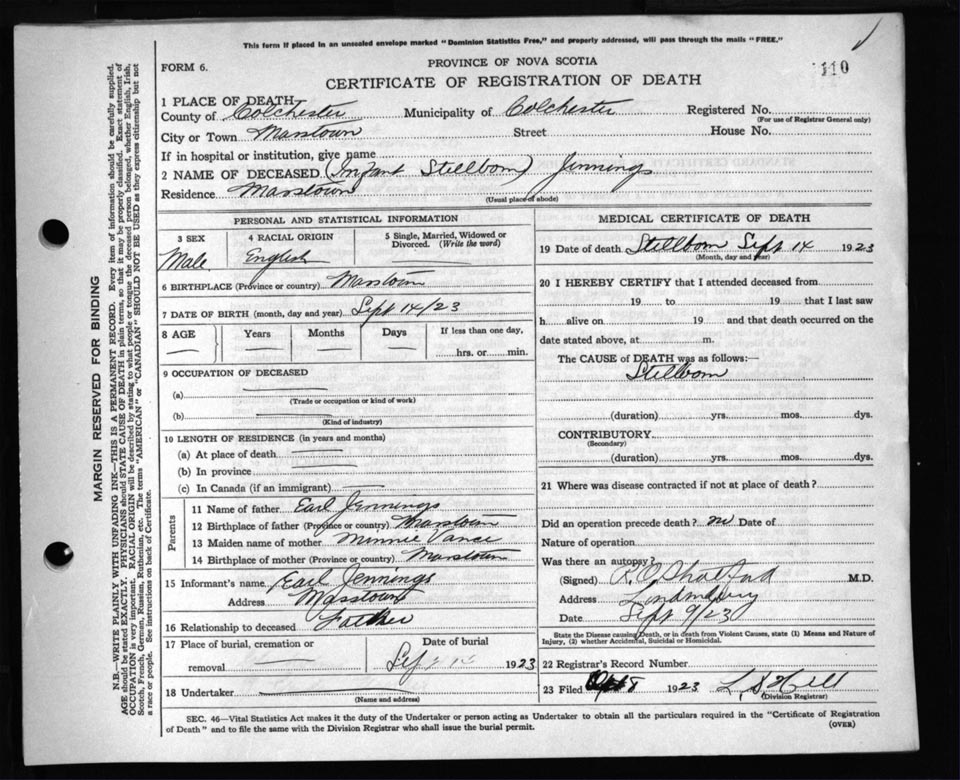 This form if placed in an unsealed envelope marked "Dominion Statistics Free," and properly addressed, will pass through the mails "FREE."
110
FORM 6.
PROVINCE OF NOVA SCOTIA
CERTIFICATE OF REGISTRATION OF DEATH
1 PLACE OF DEATH
County of Colchester Municipality of Colchester Registered No.
(For use of Registrar General only)
City or Town Masstown Street House No.
If in hospital or institution, give name
2 NAME OF DECEASED (Infant Stillborn) Jennings
Residence Masstown
(Usual place of abode)
PERSONAL AND STATISTICAL INFORMATION
3 SEX 4 RACIAL ORIGIN 5 Single, Married, Widowed or Divorced. (Write the word)
Male English
6 BIRTHPLACE (Province or country) Masstown
7 DATE OF BIRTH (month, day and year) Sept 14/23
8 AGE Years Months Days If less than one day,
hrs. or min.
9 OCCUPATION OF DECEASED
(a)
(Trade or occupation or kind of work)
(b)
(Kind of industry)
10 LENGTH OF RESIDENCE (in years and months)
(a) At place of death
(b) In province
(c) In Canada (if an immigrant)
Parents
11 Name of father Earl Jennings
12 Birthplace of father (Province or country) Masstown
13 Maiden name of mother Minnie Vance
14 Birthplace of mother (Province or country) Masstown
15 Informant's name Earl Jennings
Address Masstown
16 Relationship to deceased Father
17 Place of burial, cremation or removal Date of burial
Sept 14 1923
18 Undertaker
(Name and address)
MEDICAL CERTIFICATE OF DEATH
19 Date of death Stillborn Sept 14 1923
(Month, day and year)
20 I HEREBY CERTIFY that I attended deceased from
19 to 19 that I last saw
h alive on 19 and that death occurred on the
date stated above, at m.
The CAUSE of DEATH was as follows:—
Stillborn
(duration) yrs. mos. dys.
CONTRIBUTORY
(Secondary)
(duration) yrs. mos. dys.
21 Where was disease contracted if not at place of death?
Did an operation precede death? no Date of
Nature of operation
Was there an autopsy?
(Signed) M.D.
Address
Date Sept 9/23
State the Disease causing Death, or in death from Violent Causes, state (1) Means and Nature of
Injury, (2) whether Accidental, Suicidal or Homicidal.
22 Registrar's Record Number
23 Filed 8 1923 Hill
(Division Registrar)
SEC. 46—Vital Statistics Act makes it the duty of the Undertaker or person acting as Undertaker to obtain all the particulars required in the "Certificate of Registration
of Death" and to file the same with the Division Registrar who shall issue the burial permit.
(OVER)
MARGIN RESERVED FOR BINDING
N.B.—WRITE PLAINLY WITH UNFADING INK—THIS IS A PERMANENT RECORD. Every item of information should be carefully supplied.
AGE should be stated EXACTLY. PHYSICIANS should STATE CAUSE OF DEATH in plain terms, so that it may be properly classified. Exact statement of
OCCUPATION is very important. RACIAL ORIGIN will be described by stating to what people or tongue the deceased person belonged, whether English, Irish,
Scotch, French, German, Russian, Ruthenian, etc. The terms "AMERICAN" or "CANADIAN" SHOULD NOT BE USED as they express citizenship but not
a race or people. See instructions on back of Certificate.